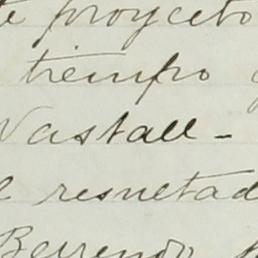 e proyecto
tiempo
Vastall-
l resuetad
Berrendo